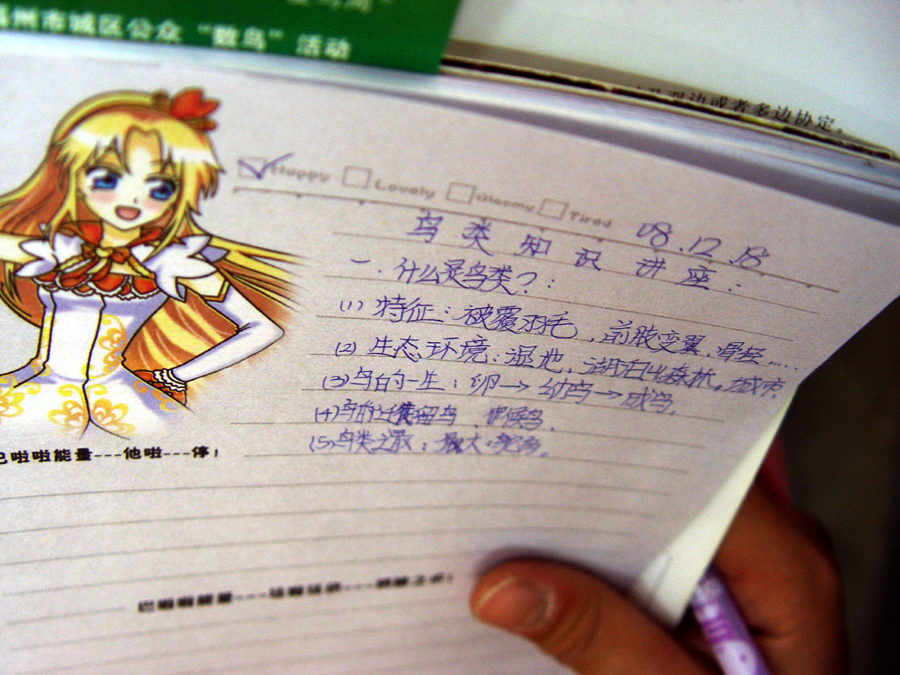 州市城区公众“数鸟”活动
双边或者多边协定。
Happy Lovely Gloomy Tired
08.12.18.
鸟类知识讲座:
一.什么是鸟类?:
(1)特征:被覆羽毛,前肢变翼,骨轻......
(2)生态环境:湿地,湖泊,森林,城市,
(3)鸟的一生:卵→幼鸟→成鸟,
(4)鸟的迁徙留鸟 候鸟.
(5)鸟类之最:最大
啦啦能量---他啦---停!